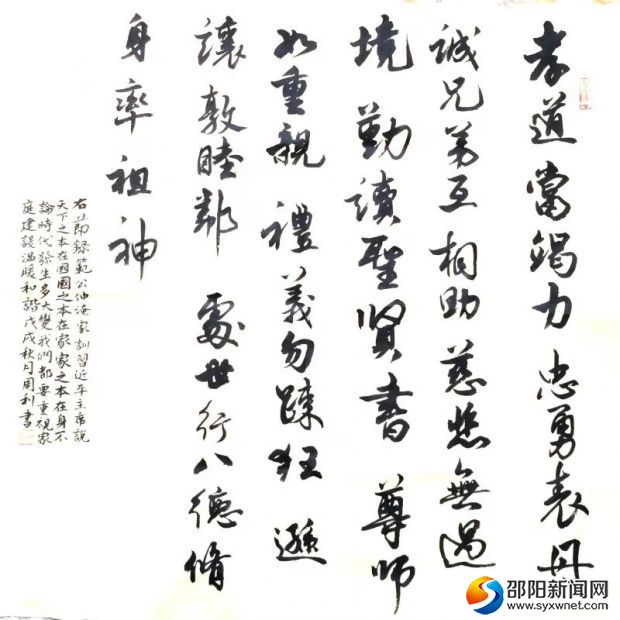 孝道當竭力 忠勇表丹
誠兄弟互相助慈悲無過
境 勤讀聖賢書 尊師
如重親 禮義勿疎狂 遜
讓敦睦鄰 處世行八德脩
身率祖神
右上即録範公仲淹家訓習近平主席說
天下之本在國國之本在家家之本在身不
論時代發生多大變我們都要重視家
庭建設温暖和諧戊戌秋月周利書
邵阳新闻网
www.syxwnet.com